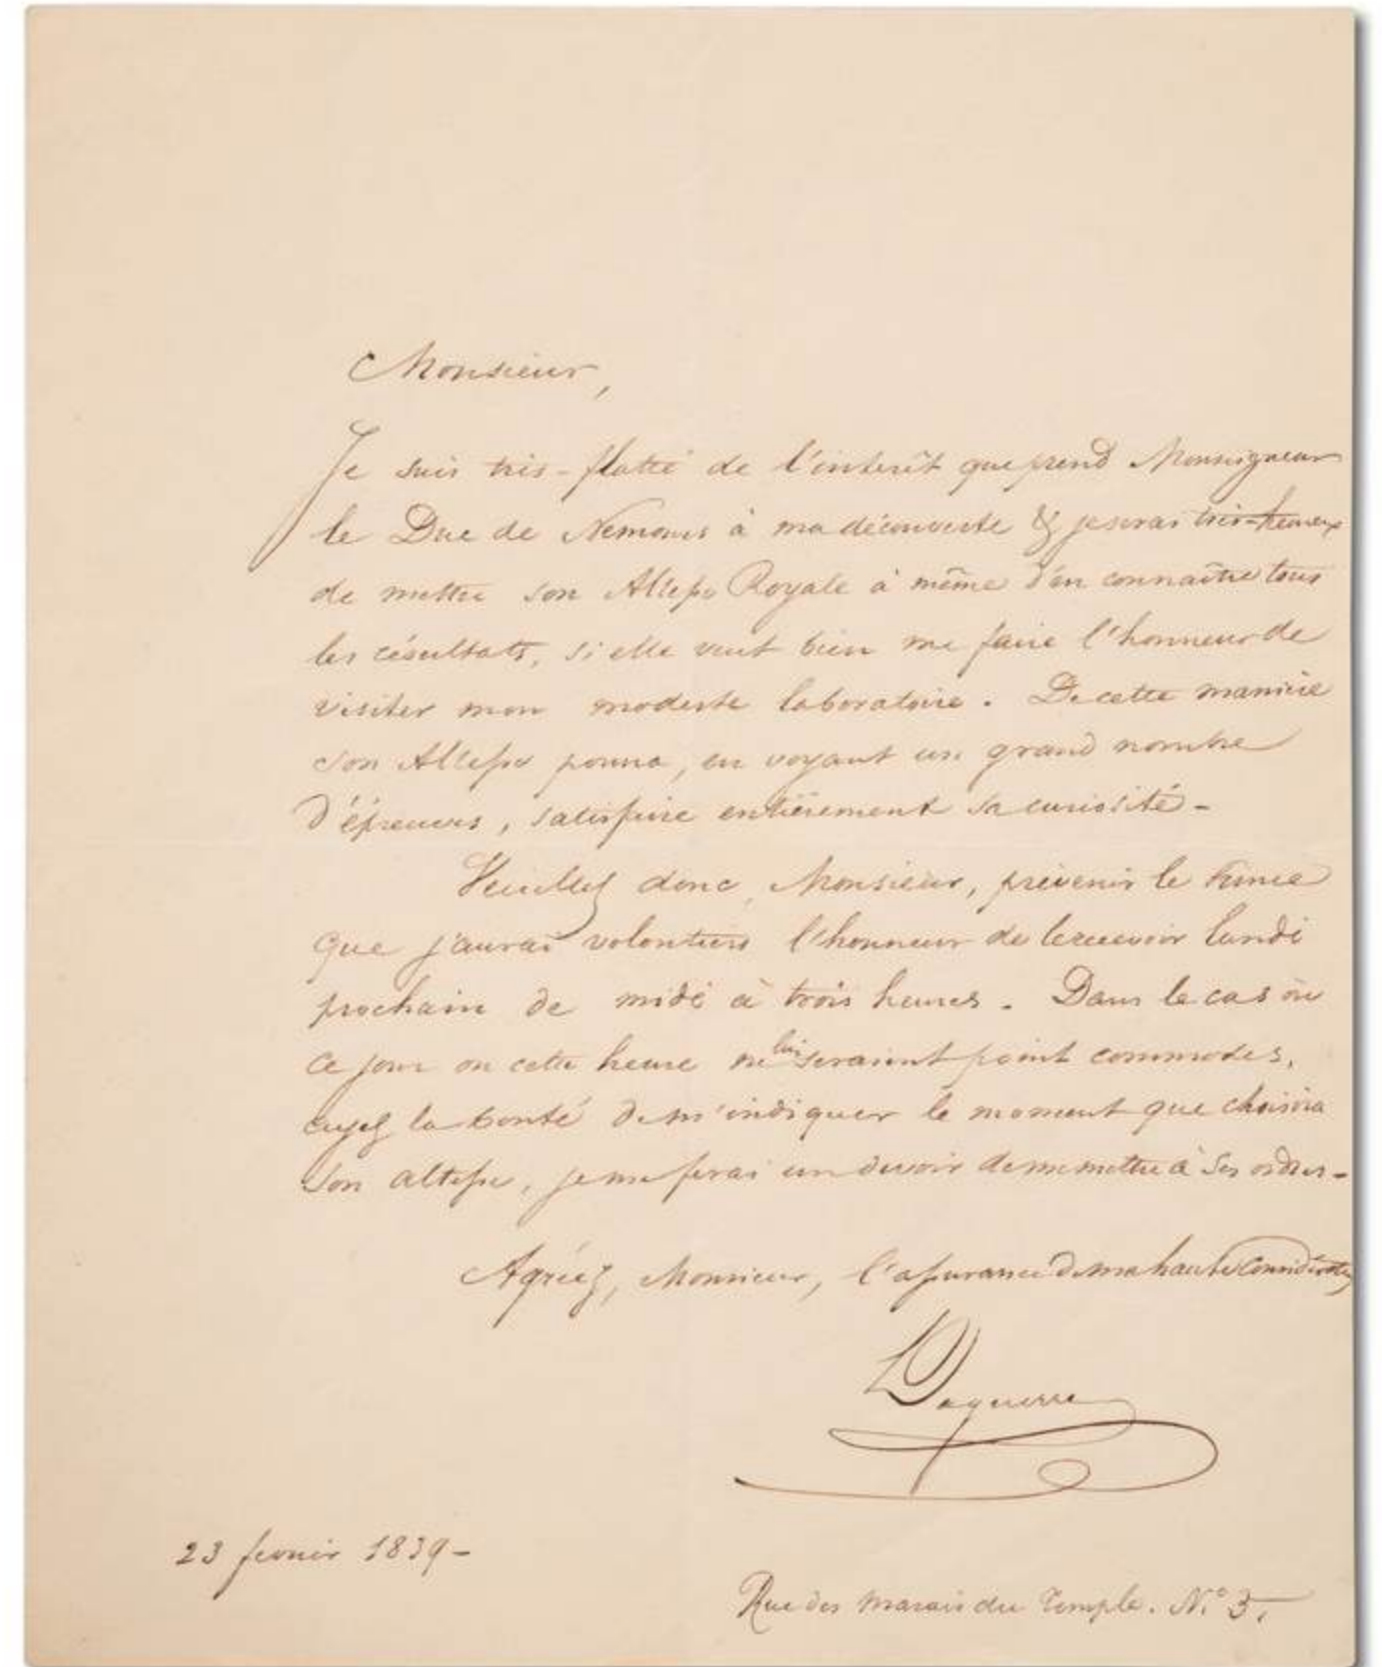 Monsieur,
Je suis très-flatté de l'interêt que prend Monseigneur
le Duc de Nemours à ma découverte & je serai très-heureux
de mettre son Altesse Royale à même d'en connaître tous
les résultats, si elle veut bien me faire l'honneur de
visiter mon modeste laboratoire. De cette manière
son Altesse pourra, en voyant un grand nombre
d'épreuves, satisfaire entièrement sa curiosité -
Veuillez donc, Monsieur, prévenir le Prince
que j'aurai volontiers l'honneur de le recevoir lundi
prochain de midi à trois heures. Dans le cas où
ce jour ou cette heure ne lui seraient point commodes,
ayez la bonté de m'indiquer le moment que choisira
Son altesse, je me ferai un devoir de me mettre à ses ordres -
Agréez, Monsieur, l'assurance de ma haute Considération
Daguerre
23 fevrier 1839 -
Rue des Marais du Temple. N.° 3.